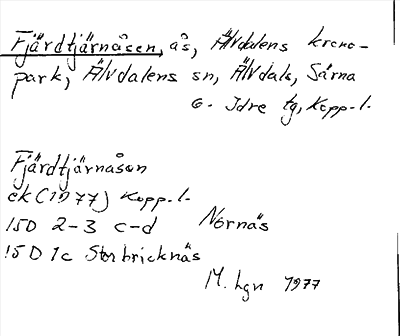 Fjärdtjärnåsen, ås, Älvdalens krono-
park, Älvdalens sn, Älvdals, Särna
o. Idre tg, Kopp. l.
Fjärdtjärnåsen
ek (1977) Kopp. l.
15D 2-3 c-d Nornäs
15D 1c Storbricknäs
M. Lgn 1977